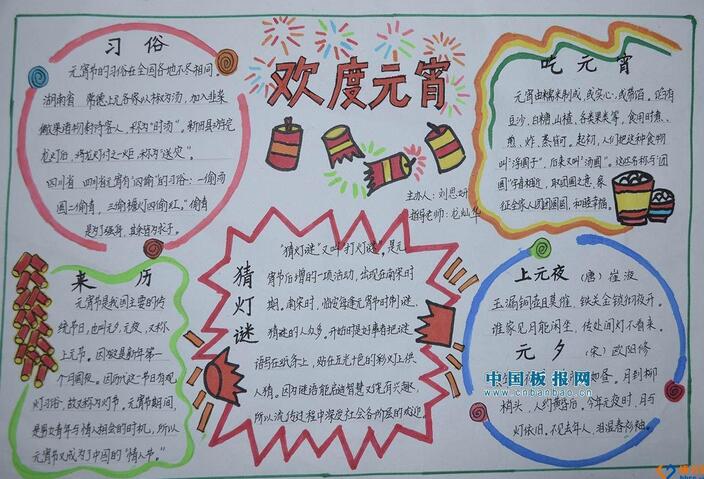 欢度元宵
主办人：刘思妍
指导老师：龙灿华
习俗
元宵节的习俗在全国各地不尽相同。
湖南省 常德上元各家以椒为汤，加入韭菜
果诸物封待客人，称为“时汤”。新田县游完
龙灯后，将龙灯付之一炬，称为“送灾”。
四川省 四川省元宵有“四偷”的习俗：一偷汤
圆二偷青，三偷檐灯四偷红。”偷青
是为了强身，其余皆为求子。
吃元宵
元宵由糯米制成，或实心，或带馅。馅有
豆沙、白糖、山楂、各类果类等，食用时煮、
煎、炸、蒸皆可。起初，人们把这种食物
叫“浮圆子”，后来又叫“汤圆”。这些名称与“团
圆”字音相近，取团圆之意，象
征全家人团团圆圆，和睦幸福。
来历
元宵节是我国主要的传
统节日，也叫元夕、元夜，又称
上元节。因为这是新年第一
个月圆夜。因历代这一节日有观
灯习俗，故又称为灯节。元宵节期间，
是男女青年与情人相会的时机，所以
元宵节又成为了中国的“情人节。”
猜灯谜
“猜灯谜”又叫“打灯谜”。是元
宵节后增的一项活动，出现在南宋时
期。南宋时，临安每逢元宵节时制谜，
猜谜的人众多。开始时是好事者把谜
语写在纸条上，贴在五光十色的彩灯上供
人猜。因为谜语能启迪智慧又饶有兴趣，
所以流传过程中深受社会各阶层的欢迎。
上元夜 （唐）崔液
玉漏铜壶且莫催，铁关金锁彻夜开。
谁家见月能闲坐，何处闻灯不看来。
元夕 （宋）欧阳修
昼。月到柳
梢头，人约黄昏后。今年元夜时，月与
灯依旧。不见去年人，泪湿春衫袖。
中国板报网
www.cnbanbao.cn